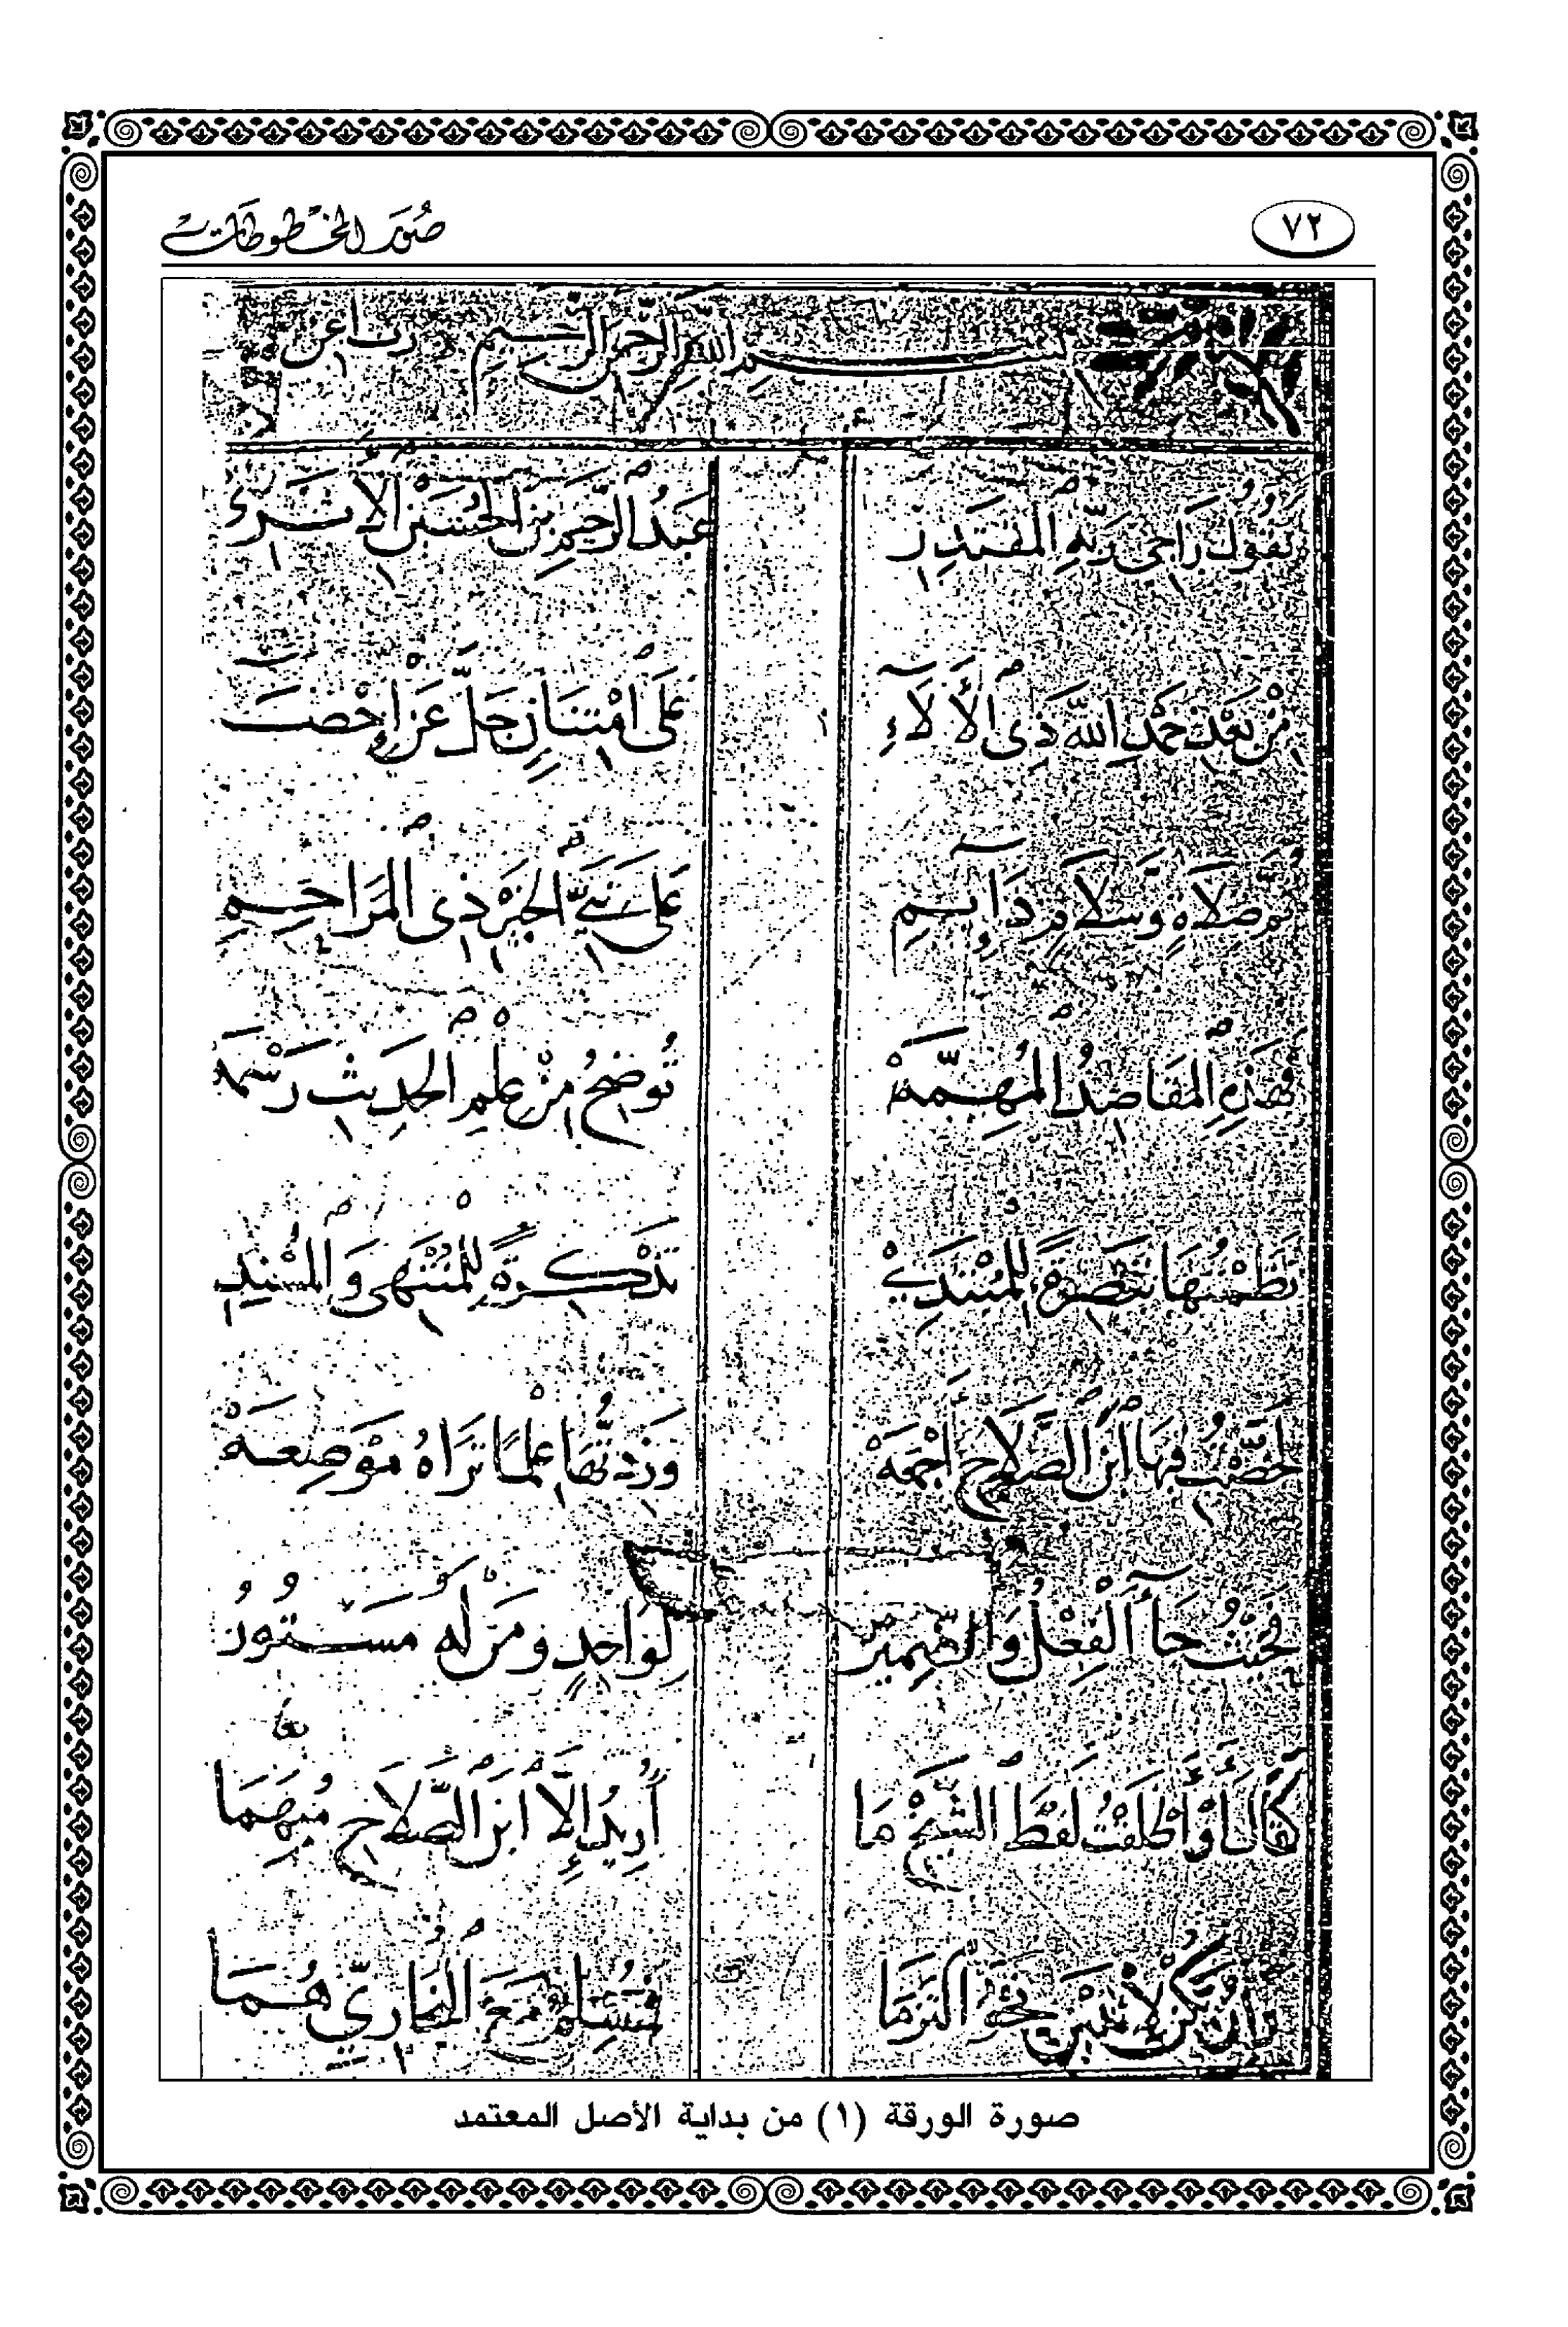 ٧٢ صور المخطوطات
بسم الله الرحمن الرحيم رب أعن
يَقُولُ رَاجِي رَبِّهِ الْمُقْتَدِرِ عَبْدُ الرَّحِيمِ بنُ الحُسَيْنِ الْأَثَرِيْ
مِنْ بَعْدِ حَمْدِ اللهِ ذِي الْآلَاءِ عَلَى امْتِنَانٍ جَلَّ عَنْ إِحْصَاءِ
ثُمَّ صَلَاةٍ وَسَلَامٍ دَائِمِ عَلَى نَبِيِّ الخَيْرِ ذِي الْمَرَاحِمِ
فَهَذِهِ الْمَقَاصِدُ الْمُهِمَّهْ تُوضِحُ مِنْ عِلْمِ الحَدِيثِ رَسْمَهْ
نَظَمْتُهَا تَبْصِرَةً لِلْمُبْتَدِيْ تَذْكِرَةً لِلْمُنْتَهِي وَالْمُسْنِدِ
لَخَّصْتُ فِيهَا ابْنَ الصَّلَاحِ أَجْمَعَهْ وَزِدْتُهَا عِلْمًا تَرَاهُ مَوْضِعَهْ
فَحَيْثُ جَاءَ الْفِعْلُ وَالضَّمِيرُ لِوَاحِدٍ وَمَنْ لَهُ مَسْتُورُ
كَقَالَ أَوْ أَطْلَقْتُ لَفْظَ الشَّيْخِ مَا أُرِيدُ إِلَّا ابْنَ الصَّلَاحِ مُبْهَمَا
وَإِنْ يَكُنْ لِاثْنَيْنِ نَحْوُ الْتَزَمَا فَمُسْلِمٌ مَعَ الْبُخَارِيِّ هُمَا
صورة الورقة (١) من بداية الأصل المعتمد